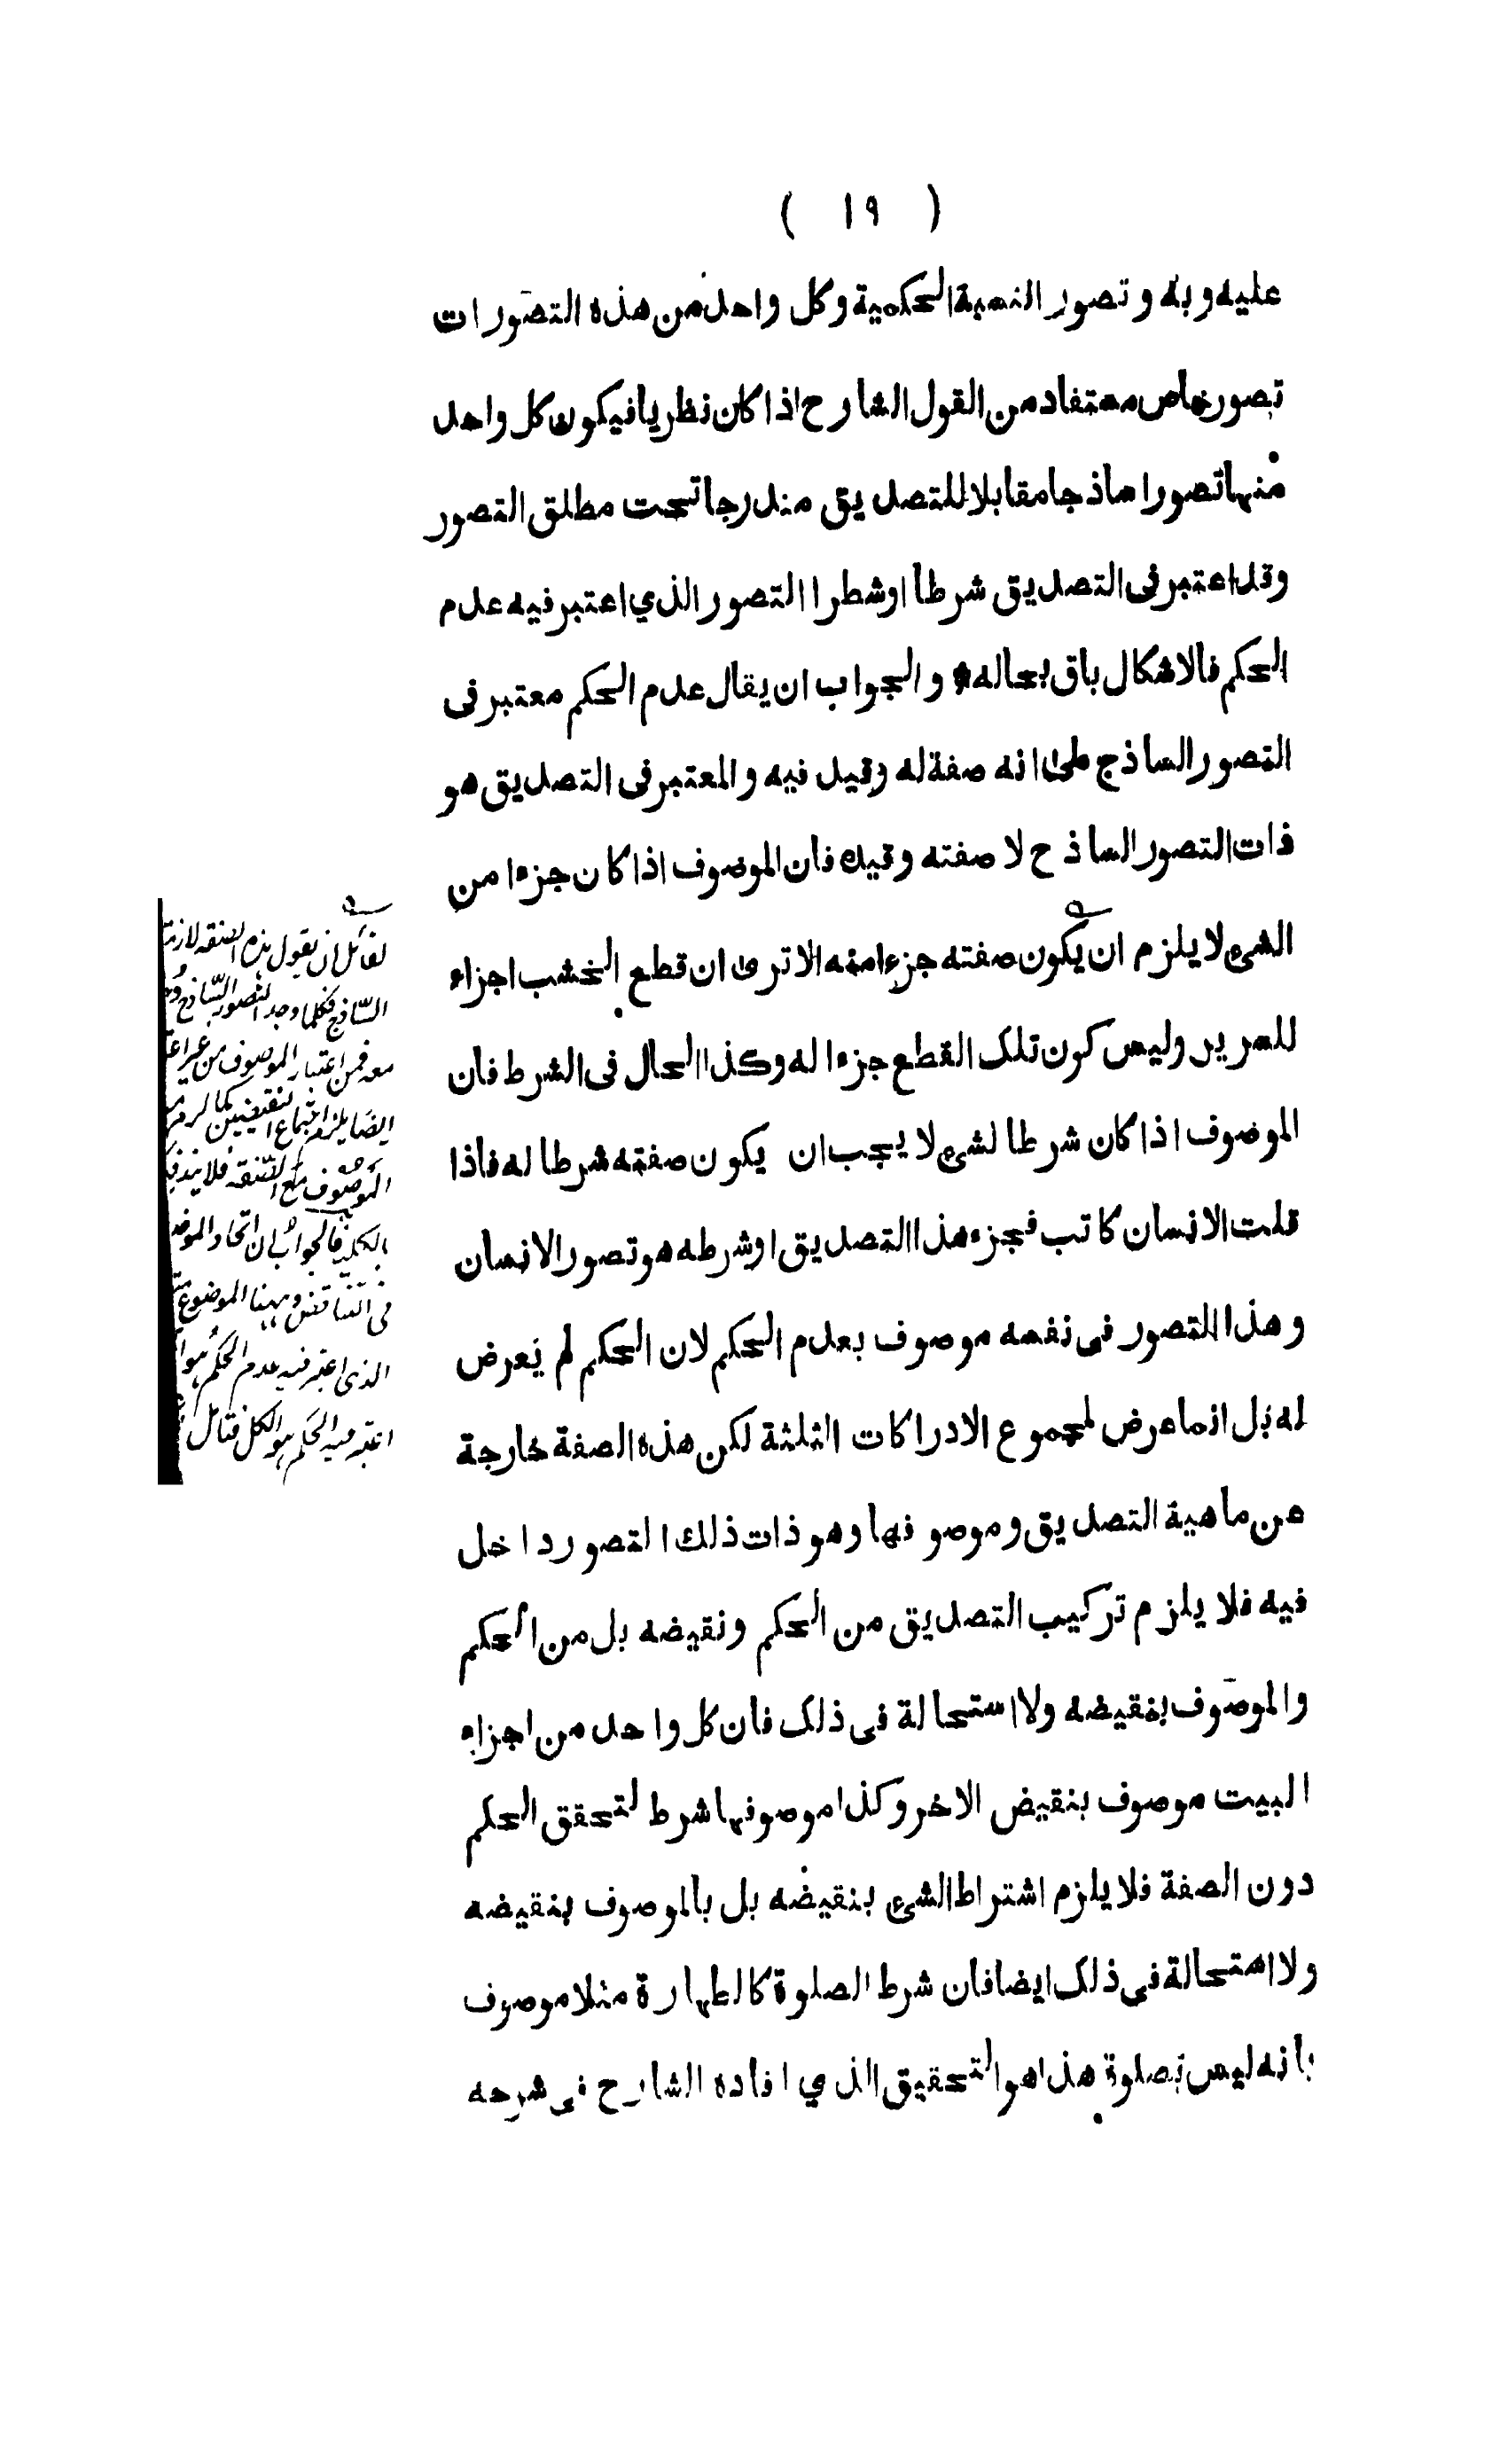 ( ١٩ )
عليه و به و تصور النسبة الحكمية و كل واحد من هذه التصورات
تصور خاص مستفاد من القول الشارح اذا كان نظريا فيكون كل واحد
منها تصورا ساذجا مقابلا للتصديق مندرجا تحت مطلق التصور
وقد اعتبر فى التصديق شرطا او شطرا التصور الذي اعتبر فيه عدم
الحكم فالاشكال باق بحاله * و الجواب ان يقال عدم الحكم معتبر فى
التصور الساذج على انه صفة له وقيد فيه و المعتبر فى التصديق هو
ذات التصور الساذج لا صفته و قيده فان الموصوف اذا كان جزءا من
الشئ لا يلزم ان يكون صفته جزءا منه الا ترى ان قطع الخشب اجزاء
للسرير وليس كون تلك القطع جزءا له وكذا الحال فى الشرط فان
الموصوف اذا كان شرطا لشئ لا يجب ان يكون صفته شرطا له فاذا
قلت الانسان كاتب فجزء هذا التصديق او شرطه هو تصور الانسان
و هذا التصور فى نفسه موصوف بعدم الحكم لان الحكم لم يعرض
له بل انما عرض لمجموع الادراكات الثلثة لكن هذه الصفة خارجة
عن ماهية التصديق و موصوفها و هو ذات ذلك التصور داخل
فيه فلا يلزم تركيب التصديق من الحكم و نقيضه بل من الحكم
و الموصوف بنقيضه ولا استحالة فى ذلك فان كل واحد من اجزاء
البيت موصوف بنقيض الاخر و كذا موصوفها شرط لتحقق الحكم
دون الصفة فلا يلزم اشتراط الشئ بنقيضه بل بالموصوف بنقيضه
ولا استحالة فى ذلك ايضا فان شرط الصلوة كالطهارة مثلا موصوف
بانه ليس بصلوة هذا هو التحقيق الذي افاده الشارح فى شرحه
لقائل ان يقول هذه الصفة لازمة
الساذج فكلما وجد التصور الساذج
معه فمن اعتبار الموصوف من غير
ايضا يلزم اجتماع النقيضين كما
الموصوف مع الصفة فلا
فالجواب بان اتحاد
فى التناقض و ههنا الموضوع
الذى اعتبر فيه عدم الحكم هو
اعتبر فيه الحكم هو الكل فتأمل